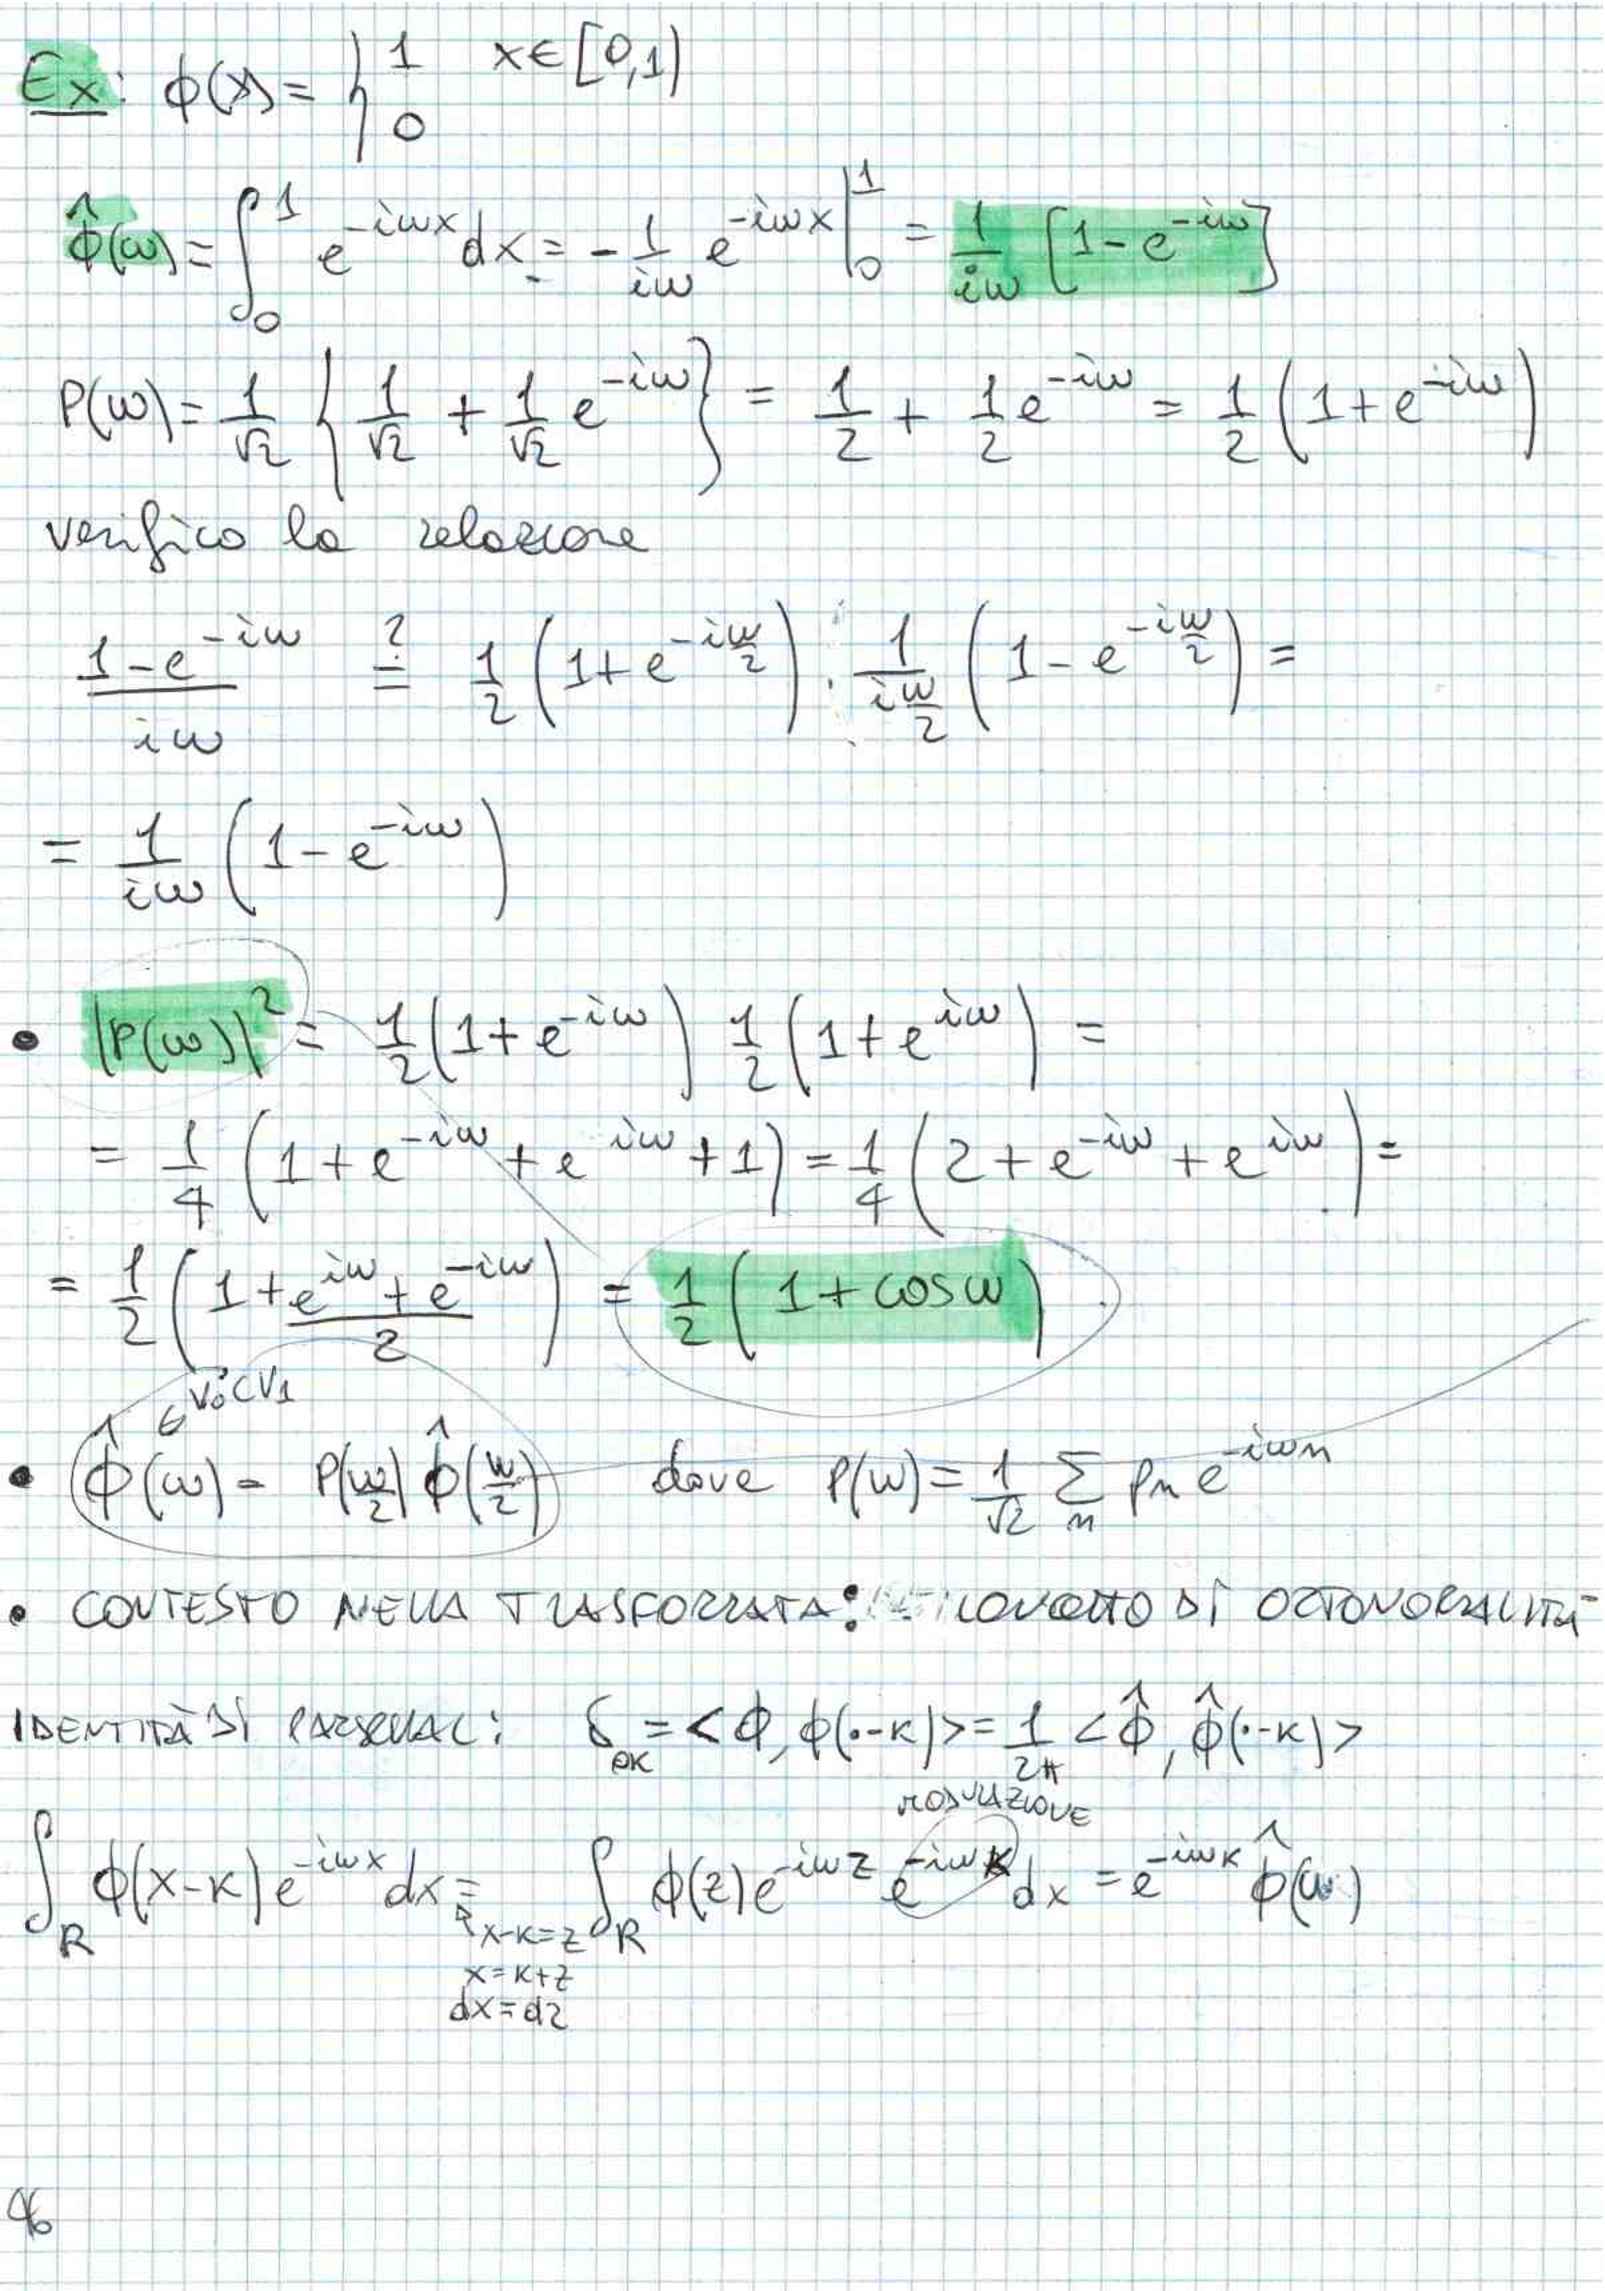 Ex: ϕ(x) = { 1 x∈[0,1)
0
ϕ̂(ω) = ∫_0^1 e^{-iωx} dx = -1/(iω) e^{-iωx} |_0^1 = 1/(iω) [1-e^{-iω}]
P(ω) = 1/√2 { 1/√2 + 1/√2 e^{-iω} } = 1/2 + 1/2 e^{-iω} = 1/2 (1+e^{-iω})
verifico la relazione
(1-e^{-iω})/(iω) ?= 1/2 (1+e^{-iω/2}) · 1/(iω/2) (1-e^{-iω/2}) =
= 1/(iω) (1-e^{-iω})
• |P(ω)|² = 1/2 (1+e^{-iω}) 1/2 (1+e^{iω}) =
= 1/4 (1+e^{-iω}+e^{iω}+1) = 1/4 (2+e^{-iω}+e^{iω}) =
= 1/2 (1+(e^{iω}+e^{-iω})/2) = 1/2 (1+cosω)
∈ V₀⊂V₁
• ϕ̂(ω) = P(ω/2) ϕ̂(ω/2) dove P(ω) = 1/√2 Σ_n p_n e^{-iωn}
• CONTESTO NELLA TRASFORMATA: CONCETTO DI ORTONORMALITÀ
IDENTITÀ DI PARSEVAL: δ_{0K} = <ϕ, ϕ(·-K)> = 1/2π <ϕ̂, ϕ̂(·-K)>
MODULAZIONE
∫_R ϕ(x-K) e^{-iωx} dx = ∫_R ϕ(z) e^{-iωz} e^{-iωK} dx = e^{-iωK} ϕ̂(ω)
x-K=z
x=K+z
dx=dz
96